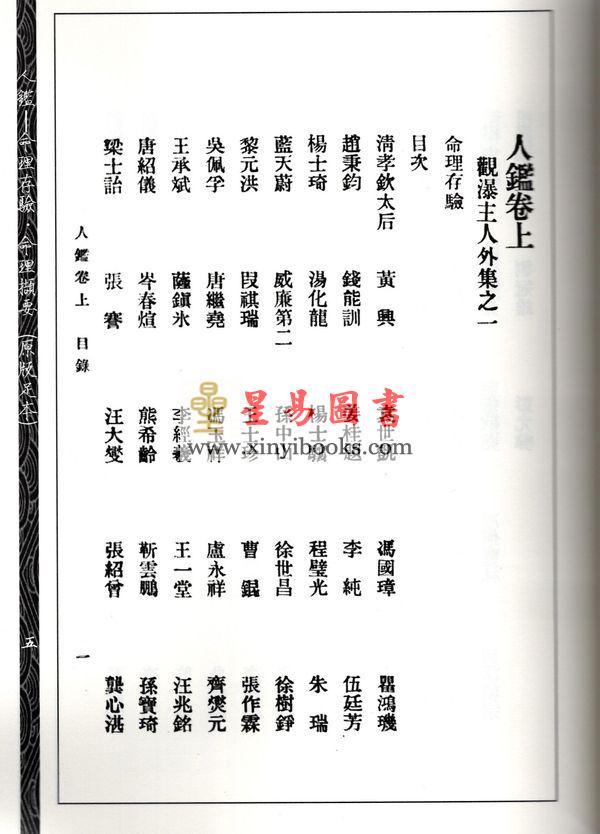 人鑑卷上
觀瀑主人外集之一
命理存驗
目次
清孝欽太后 黃興 袁世凱 馮國璋 瞿鴻璣
趙秉鈞 錢能訓 姜桂題 李純 伍廷芳
楊士琦 湯化龍 楊士驤 程璧光 朱瑞
藍天蔚 威廉第二 孫中山 徐世昌 徐樹錚
黎元洪 段祺瑞 王士珍 曹錕 張作霖
吳佩孚 唐繼堯 馮玉祥 盧永祥 齊燮元
王承斌 薩鎭氷 李經羲 王一堂 汪兆銘
唐紹儀 岑春煊 熊希齡 靳雲鵬 孫寶琦
梁士詒 張謇 汪大燮 張紹曾 龔心湛
人鑑卷上 目錄 一
人鑑—命理存驗·命理擷要(原版足本) 五
星易圖書
www.xinyibooks.com